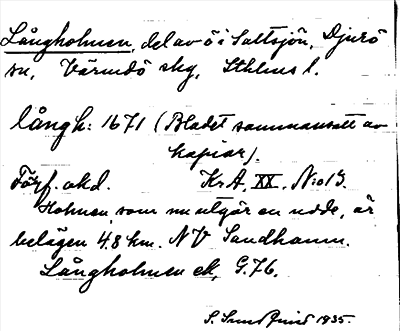 Långholmen, del av ö i Saltsjön, Djurö
sn, Värmdö skg, Sthlms l.
långh: 1671 (Bladet sammansatt av
kopior).
Förf. okd. KrA, XX, No 13.
Holmen, som nu utgör en udde, är
belägen 4.8 km. NV Sandhamn.
Långholmen ek, G.76.
S. Sundquist 1935.